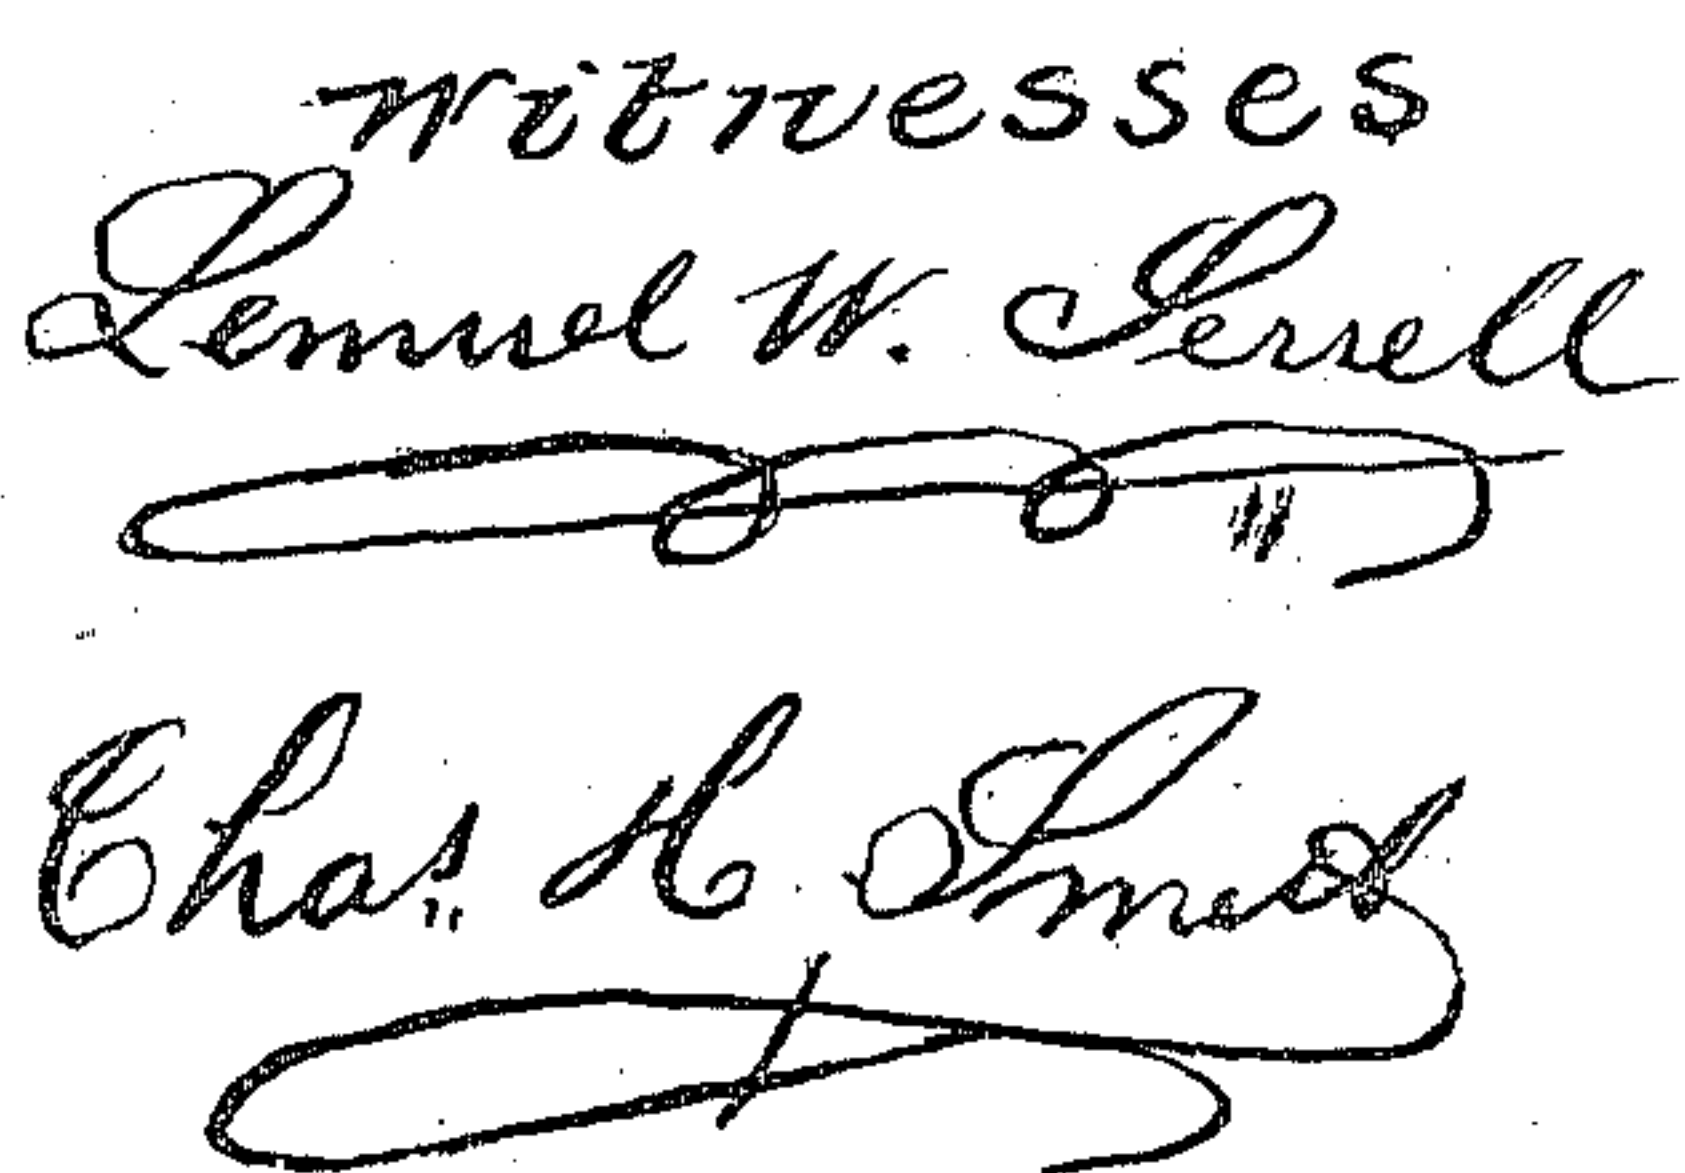 Witnesses
Lemuel W. Serrell
Chas. H. Smith